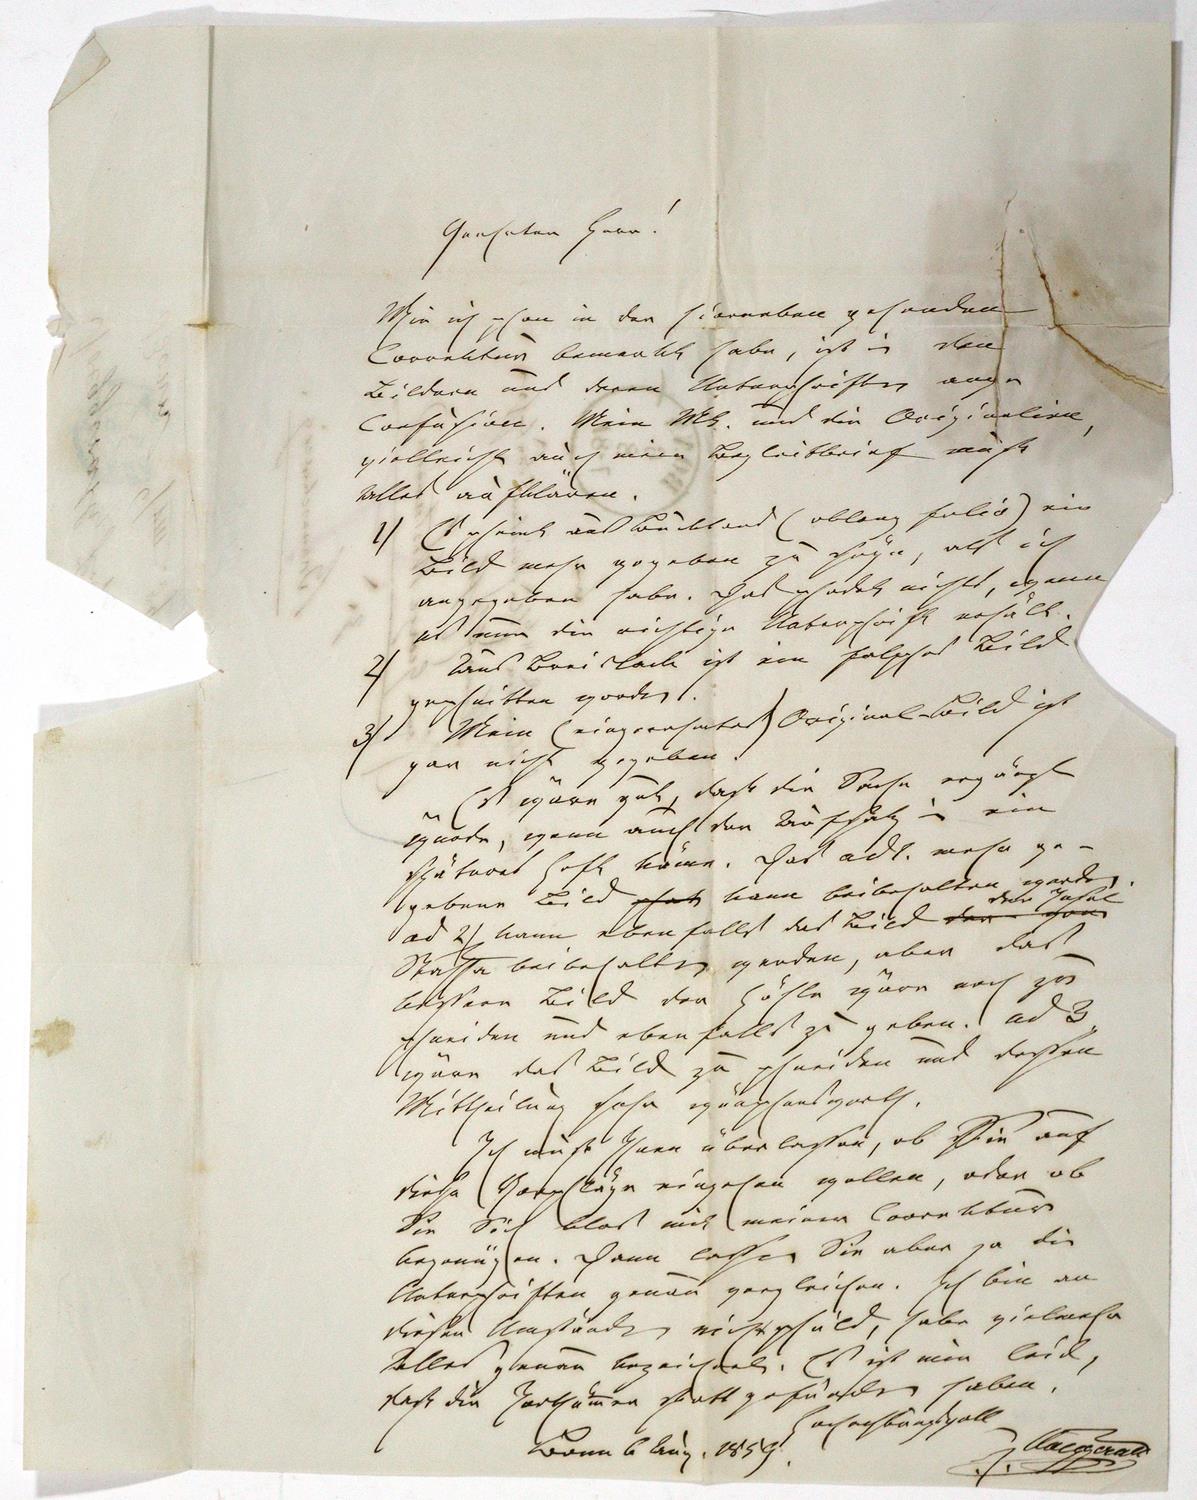 Geehrter Herr!
Wie ich schon in der hierneben gehenden
Correktur bemerkt habe, ist in den
Bildern und deren Unterschriften arge
Confusion. Mein Ms. und die Originalien,
vielleicht auch mein Begleitbrief muß
Alles aufklären.
1) Es scheint aus Buckland (oblong folio) ein
Bild mehr gegeben zu seyn, als ich
angegeben habe. Das schadet nichts, wenn
es nur die richtige Unterschrift erhält.
2) Aus Breislack ist ein falsches Bild
geschnitten worden.
3) Mein (eingesendetes) Original-Bild ist
gar nicht gegeben.
Es wäre gut, daß die Sache ergänzt
würde, wenn auch der Aufsatz in ein
späteres Heft käme. Das ad 1. mehr ge-
gebene Bild kann beibehalten werden.
ad 2) kann ebenfalls das Bild der Insel
Staffa beibehalten werden, aber das
bessere Bild der Höhle wäre noch zu
schneiden und ebenfalls zu geben. ad 3.
wäre das Bild zu schneiden und dessen
Mittheilung sehr wünschenswerth.
Ich muß Ihnen überlassen, ob Sie auf
diese Vorschläge eingehen wollen, oder ob
Sie Sich blos mit meiner Correktur
begnügen. Dann lassen Sie aber ja die
Unterschriften genau vergleichen. Ich bin an
diesen Umständen nicht schuld, habe vielmehr
Alles genau bezeichnet. Es ist mir leid,
daß die Irrthümer statt gefunden haben.
Hochachtungsvoll
Bonn 6 Aug. 1859.
Nöggerath